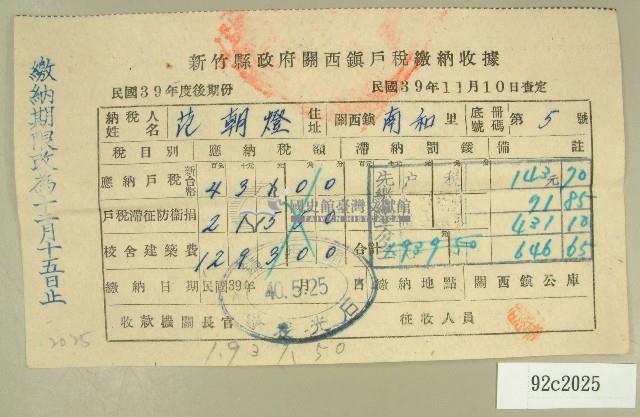 新竹縣政府關西鎮戶稅繳納收據
民國39年度後期份
民國39年11月10日查定
納稅人姓名 范朝燈 住址 關西鎮南和里 底冊號碼 第5號
稅目別 應納稅額 滯納罰鍰 備註
應納戶稅 新台幣 431 00
戶稅 143元70
91 85
戶稅帶征防衞捐 215 50
431 10
校舍建築費 1293 00
合計 1939 50
646 65
繳納日期 民國39年 月 日 繳納地點 關西鎮公庫
40.5.25
石光
收款機關長官 征收人員
1,939.50
繳納期限改為十二月十五日止
2025
國史館臺灣文獻館
TAIWAN HISTORICA
92c2025